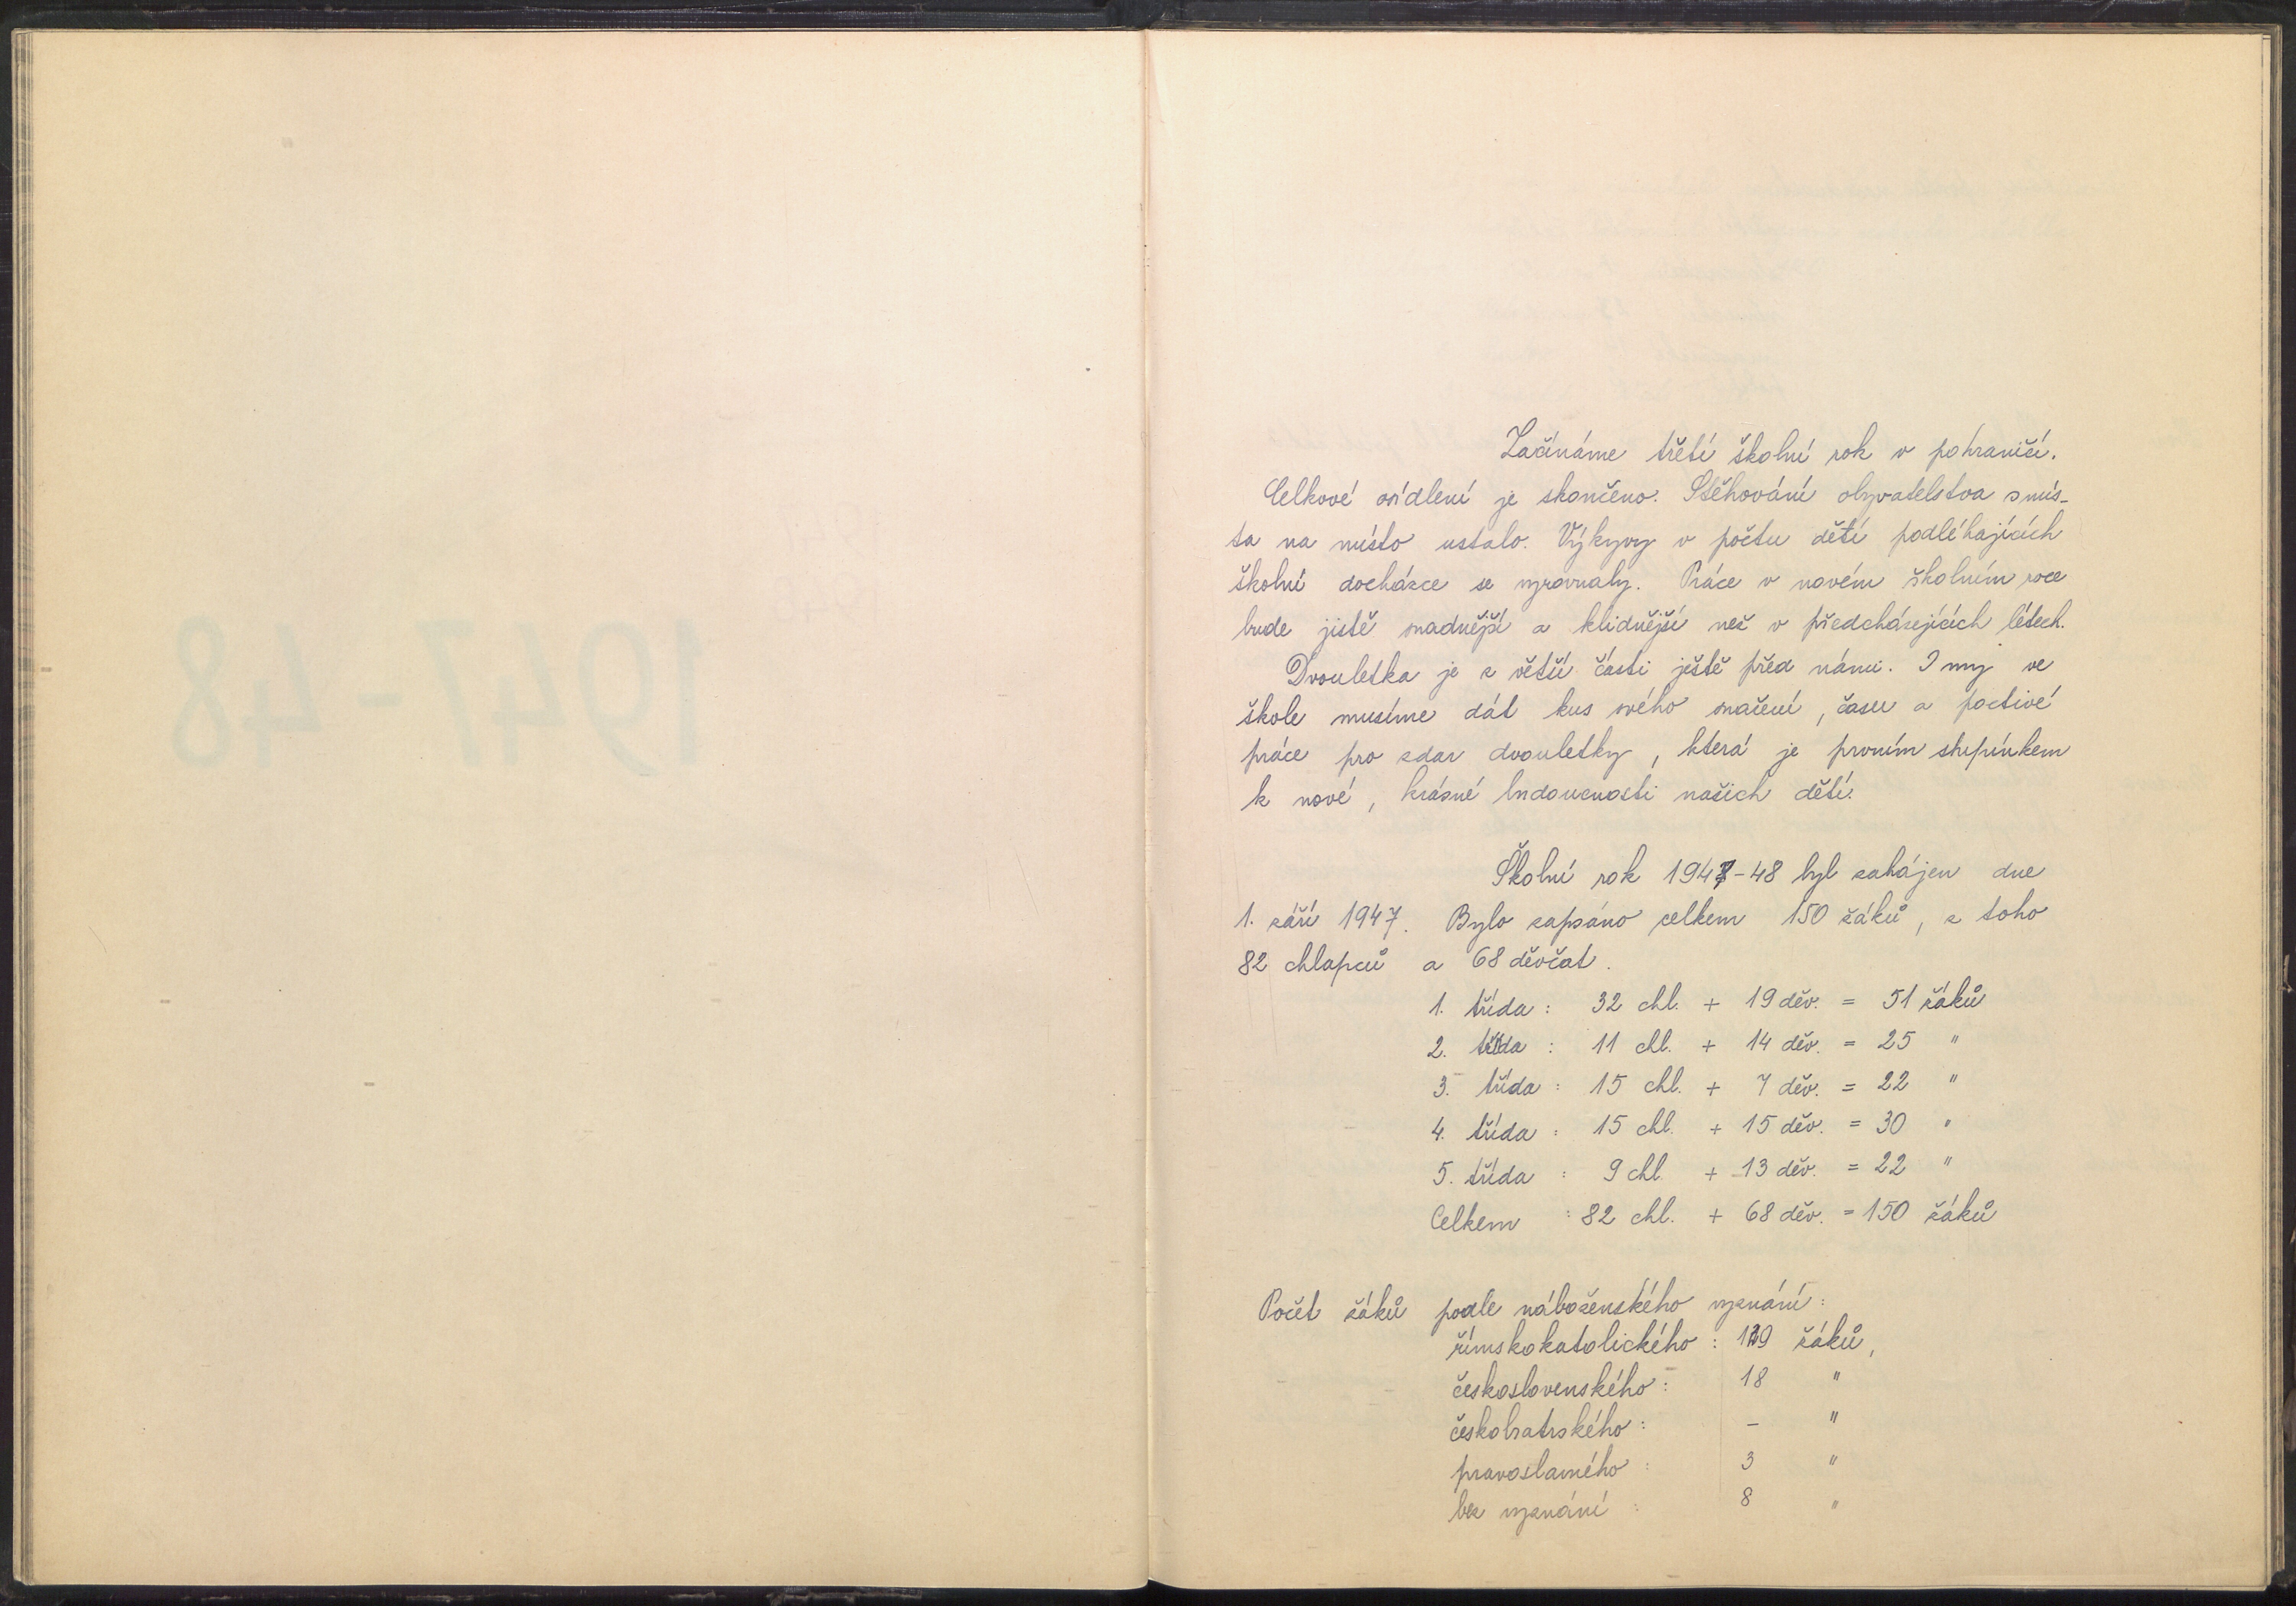 Začínáme třetí školní rok v pohraničí.
Celkové osídlení je skončeno. Stěhování obyvatelstva s mís-
ta na místo ustalo. Výkyvy v počtu dětí podléhajících
školní docházce se vyrovnaly. Práce v novém školním roce
bude jistě snadnější a klidnější než v předcházejících létech.
Dvouletka je z větší části ještě před námi. I my ve
škole musíme dát kus svého snažení, času a poctivé
práce pro zdar dvouletky, která je prvním stupínkem
k nové, krásné budoucnosti našich dětí.
Školní rok 1947-48 byl zahájen dne
1. září 1947. Bylo zapsáno celkem 150 žáků, z toho
82 chlapců a 68 děvčat.
1. třída : 32 chl. + 19 děv. = 51 žáků
2. třída : 11 chl. + 14 děv. = 25 "
3. třída : 15 chl. + 7 děv. = 22 "
4. třída : 15 chl. + 15 děv. = 30 "
5. třída : 9 chl. + 13 děv. = 22 "
Celkem : 82 chl. + 68 děv. = 150 žáků
Počet žáků podle náboženského vyznání :
římskokatolického : 129 žáků,
československého : 18 "
českobratrského : – "
pravoslavného : 3 "
bez vyznání : 8 "